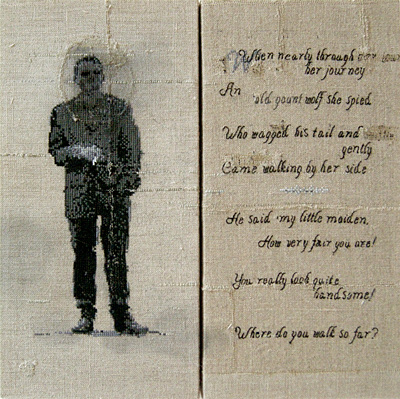 When nearly through
her journey
An
old gaunt wolf she spied
Who wagged his tail and
gently
Came walking by her side
He said my little maiden,
How very fair you are!
You really look quite
handsome!
Where do you walk so far?